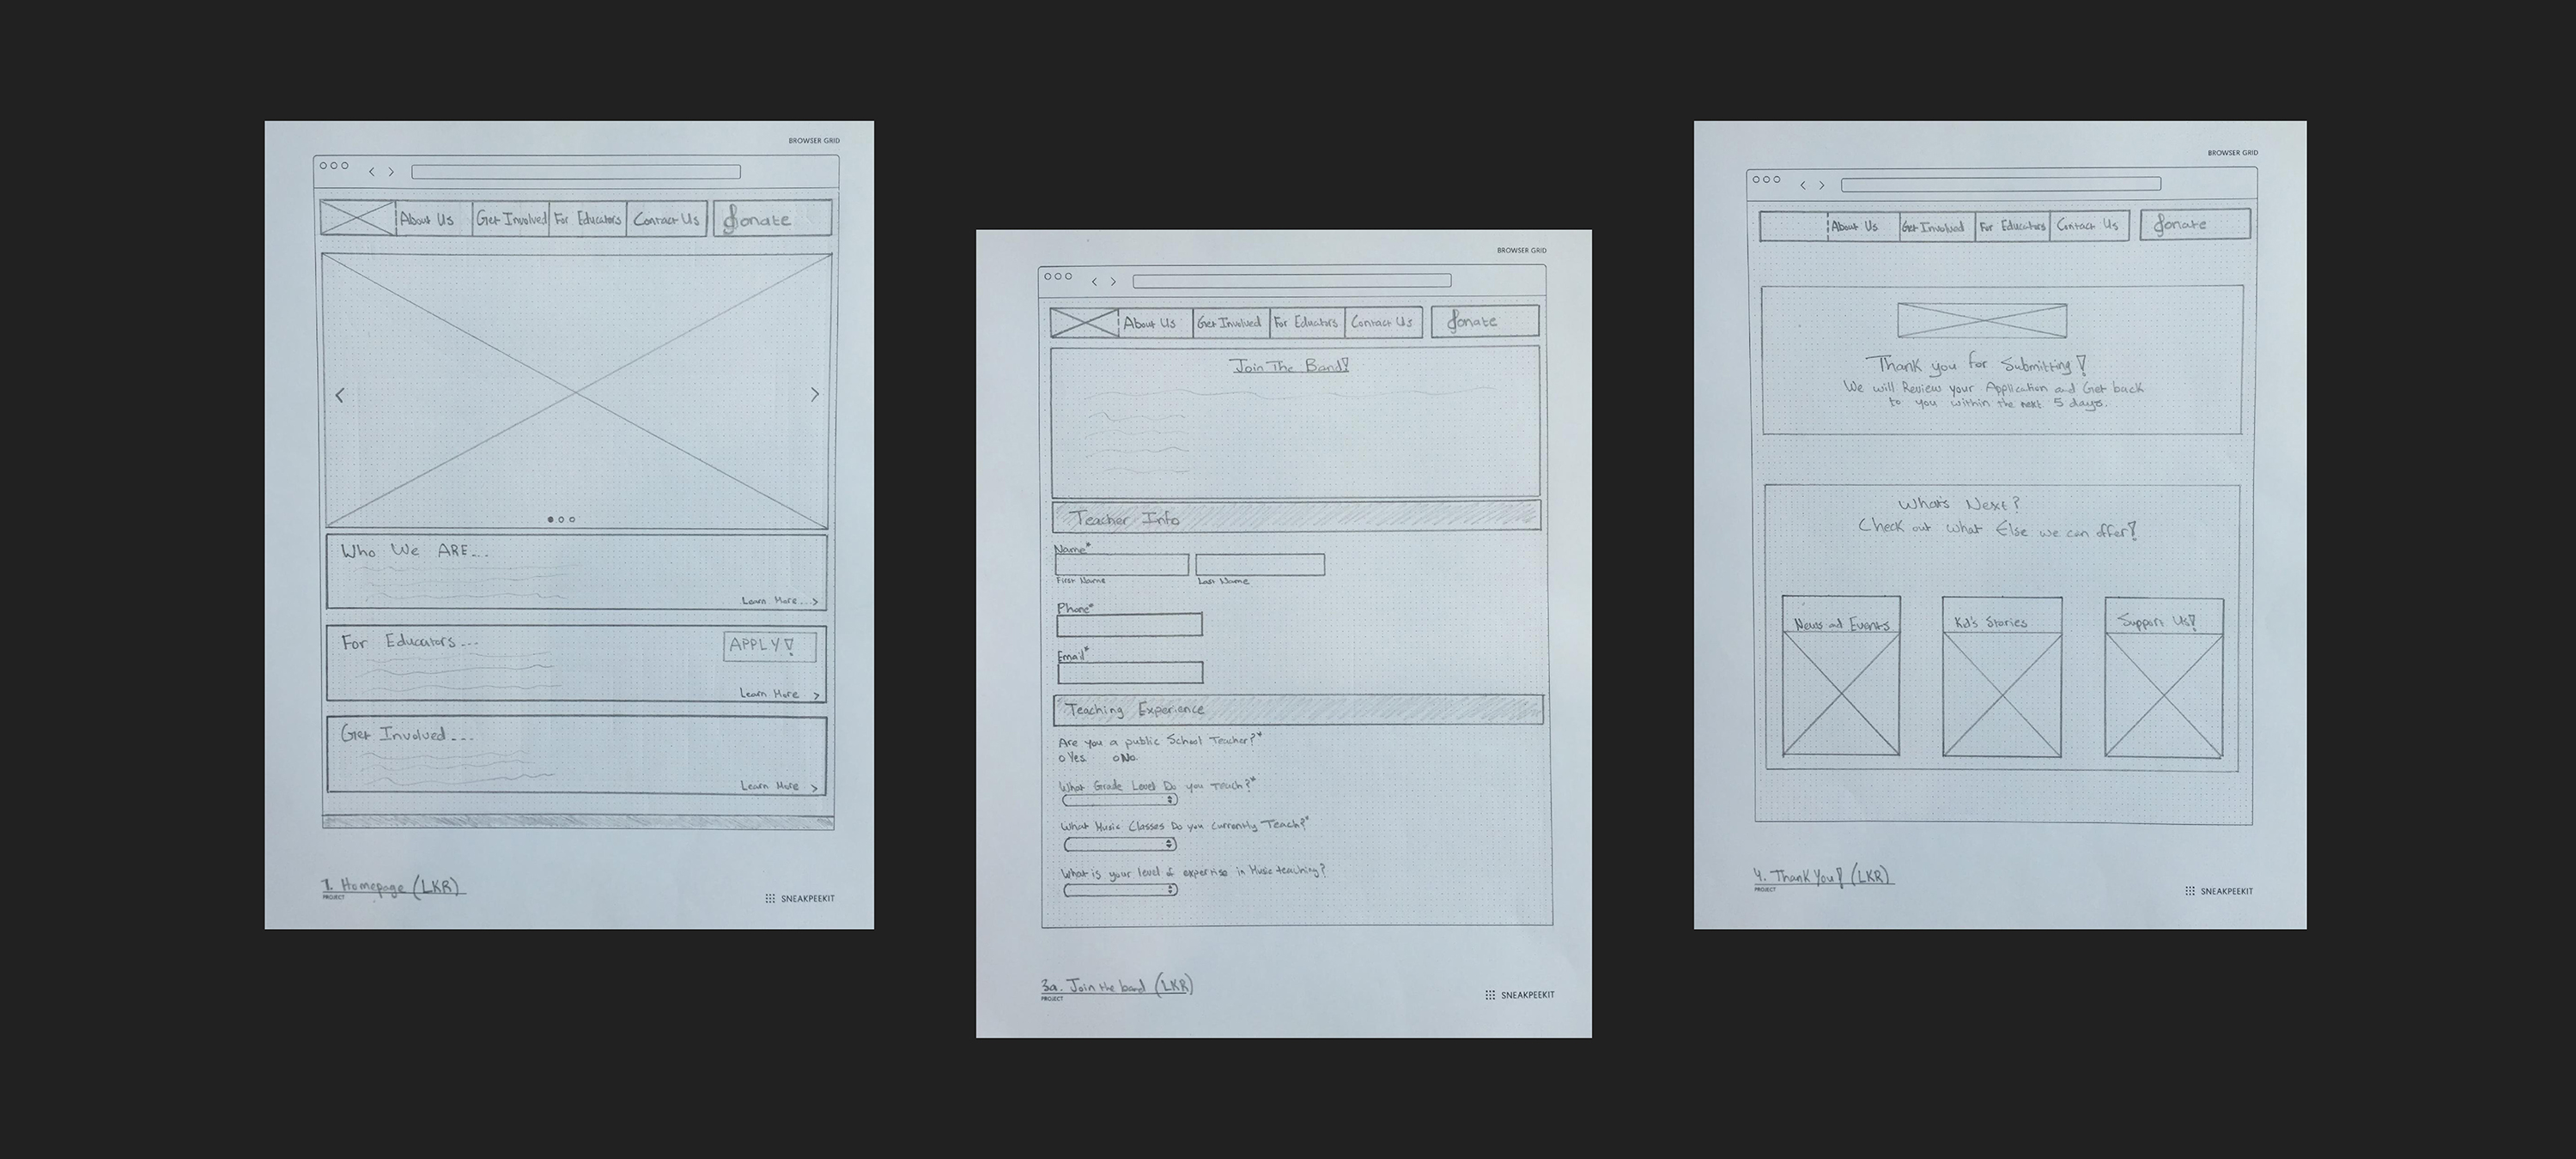 BROWSER GRID
About Us
Get Involved
For Educators
Contact Us
Donate
Who We ARE...
Learn More...>
For Educators...
APPLY!
Learn More >
Get Involved...
Learn More >
1. Homepage (LKR)
PROJECT
SNEAKPEEKIT
BROWSER GRID
About Us
Get Involved
For Educators
Contact Us
Donate
Join The Band!
Teacher Info
Name*
First Name
Last Name
Phone*
Email*
Teaching Experience
Are you a public School Teacher?*
Yes No
What Grade Level Do you Teach?*
What Music Classes Do you currently Teach?*
What is your level of expertise in Music teaching?
3a. Join the band (LKR)
PROJECT
SNEAKPEEKIT
BROWSER GRID
About Us
Get Involved
For Educators
Contact Us
Donate
Thank you for Submitting!
We will Review your Application and Get back
to you within the next 5 days.
What's Next?
Check out what Else we can offer!
News and Events
Kid's Stories
Support Us!
4. Thank You! (LKR)
PROJECT
SNEAKPEEKIT